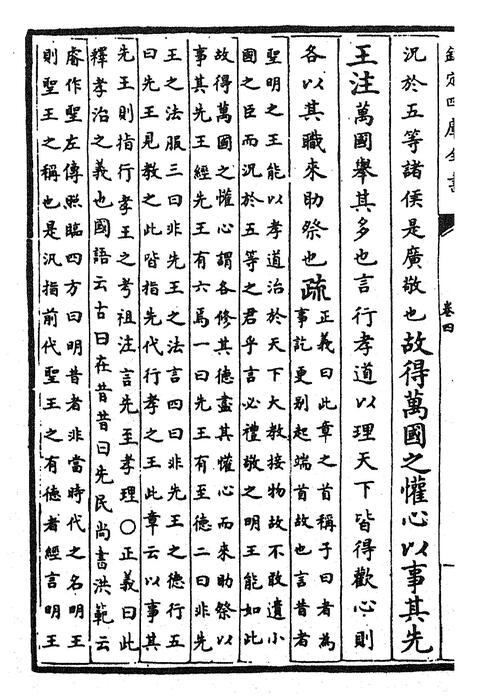 欽定四庫全書
卷四
一
況於五等諸侯是廣敬也故得萬國之懽心以事其先
王注萬國舉其多也言行孝道以理天下皆得歡心則
各以其職來助祭也疏
正義曰此章之首稱子曰者為
事訖更别起端首故也言昔者
聖明之王能以孝道治於天下大教接物故不敢遺小
國之臣而況於五等之君乎言必禮敬之明王能如此
故得萬國之懽心謂各修其德盡其懽心而來助祭以
事其先王經先王有六焉一曰先王有至德二曰非先
王之法服三曰非先王之法言四曰非先王之德行五
曰先王見教之此皆指先代行孝之王此章云以事其
先王則指行孝王之考祖注言先至孝理○正義曰此
釋孝治之義也國語云古曰在昔昔曰先民尚書洪範云
睿作聖左傳照臨四方曰明昔者非當時代之名明王
則聖王之稱也是汎指前代聖王之有德者經言明王